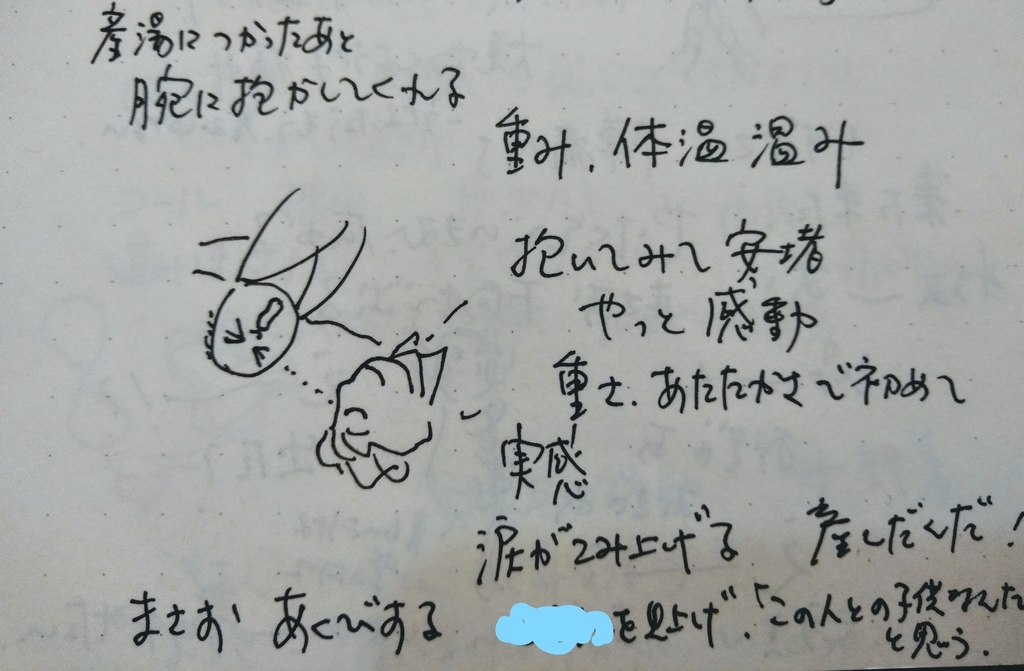 産湯につかったあと
腕に抱かしてくれる
重み、体温 温み
抱いてみて安堵
やっと感動
重さ、あたたかさで初めて
実感
涙がこみ上げる 産しだんだ!
まさお あくびする
を見上げ、「この人との子供
と思う。